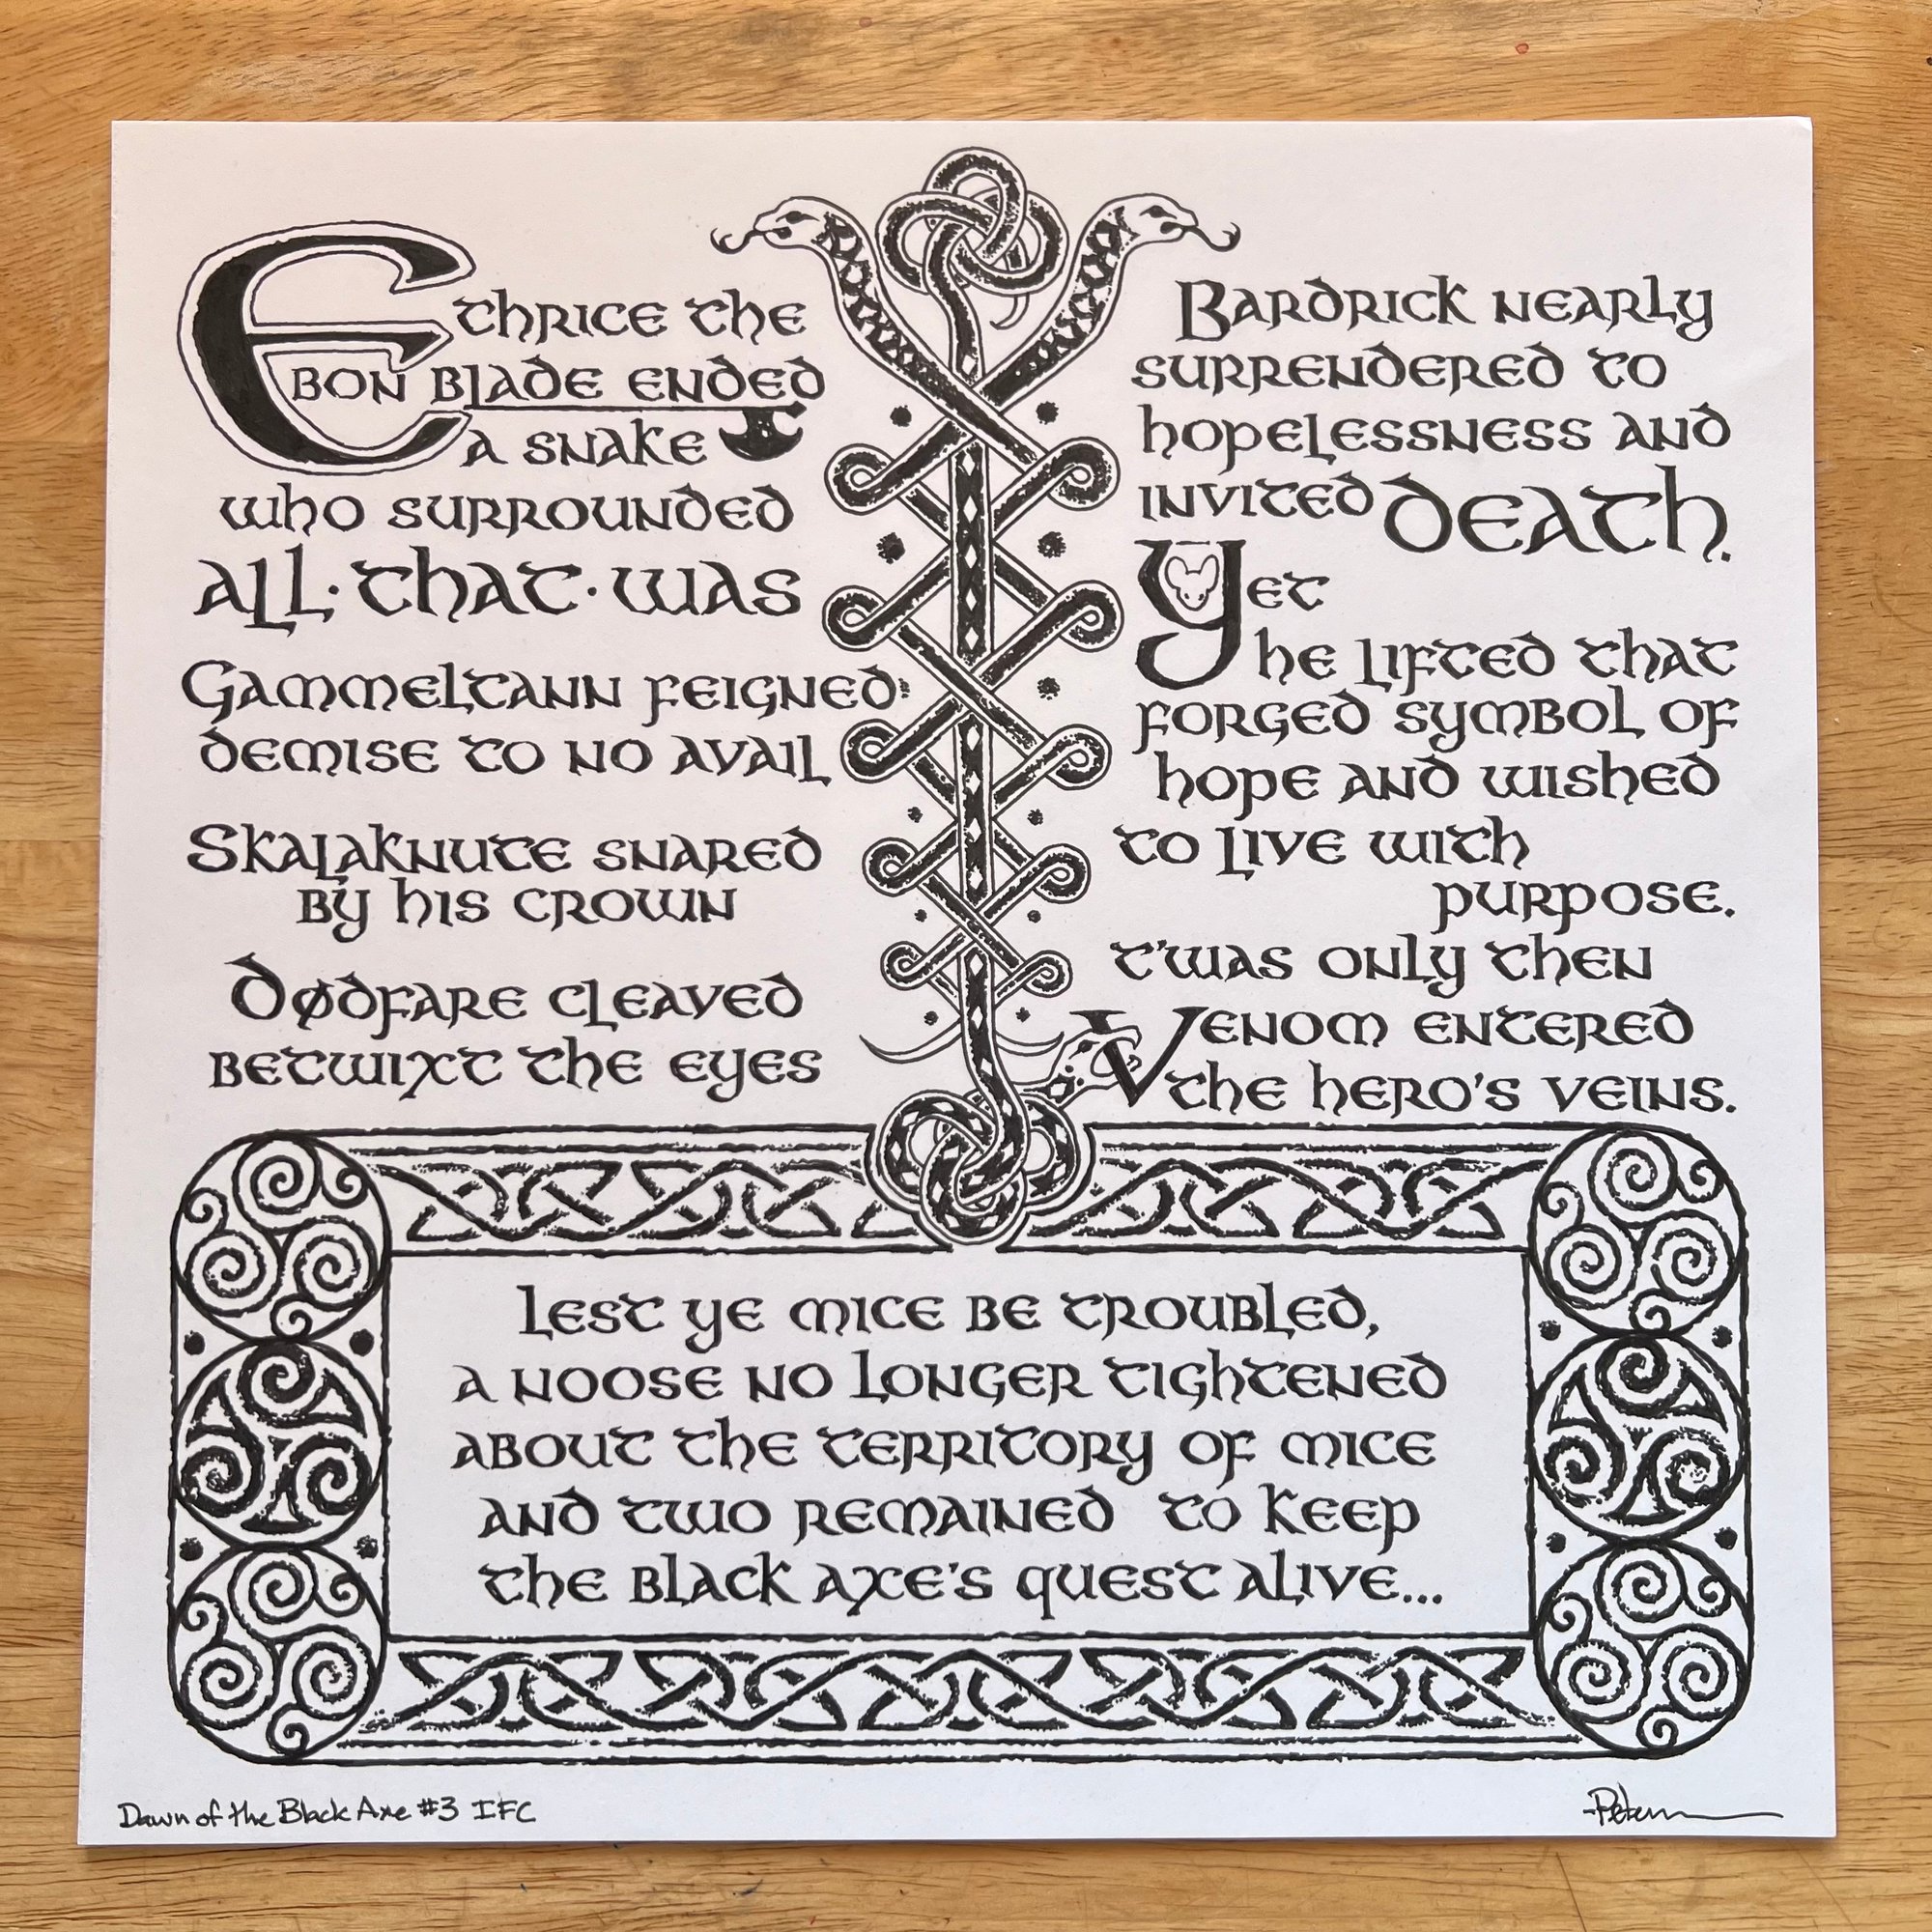 Thrice the
Ebon blade ended
a snake
who surrounded
all·that·was
Gammeltann feigned
demise to no avail
Skalaknute snared
by his crown
Dødfare cleaved
betwixt the eyes
Bardrick nearly
surrendered to
hopelessness and
invited death.
Yet
he lifted that
forged symbol of
hope and wished
to live with
purpose.
t'was only then
Venom entered
the hero's veins.
Lest ye mice be troubled,
a noose no longer tightened
about the territory of mice
and two remained to keep
the Black Axe's quest alive...
Dawn of the Black Axe #3 IFC